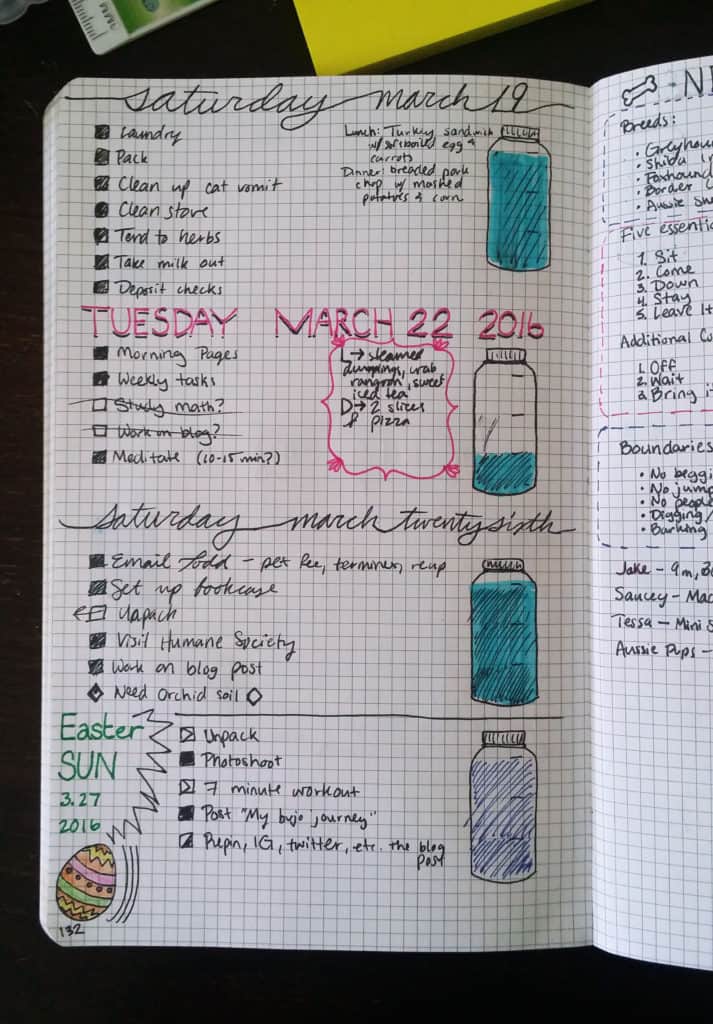 Saturday March 19
Laundry
Pack
Clean up cat vomit
Clean stove
Tend to herbs
Take milk out
Deposit checks
Lunch: Turkey sandwich
w/ softboiled egg &
carrots
Dinner: breaded pork
chop w/ mashed
potatoes & corn
TUESDAY MARCH 22 2016
Morning Pages
Weekly tasks
Study math?
Work on blog?
Meditate (10-15 min?)
L → steamed
dumplings, crab
rangoon, sweet
iced tea
D → 2 slices
pizza
Saturday March twenty sixth
Email Todd - pet fee, terminex,
Set up bookcase
Unpack
Visit Humane Society
Work on blog post
Need Orchid soil
Easter
SUN
3.27
2016
Unpack
Photoshoot
7 minute workout
Post "My bujo journey"
Prepin, IG, twitter, etc. the blog
post
132
Breeds:
• Greyhou
• Shiba I
• Foxhound
• Border
• Aussie She
Five essenti
1. Sit
2. Come
3. Down
4. Stay
5. Leave It
Additional Co
1. OFF
2. Wait
3. Bring i
Boundaries
• No beggi
• No jump
• No people
• Digging/
• Barking
Jake - 9m, 30
Saucey - Mac
Tessa - Mini S
Aussie Pups -